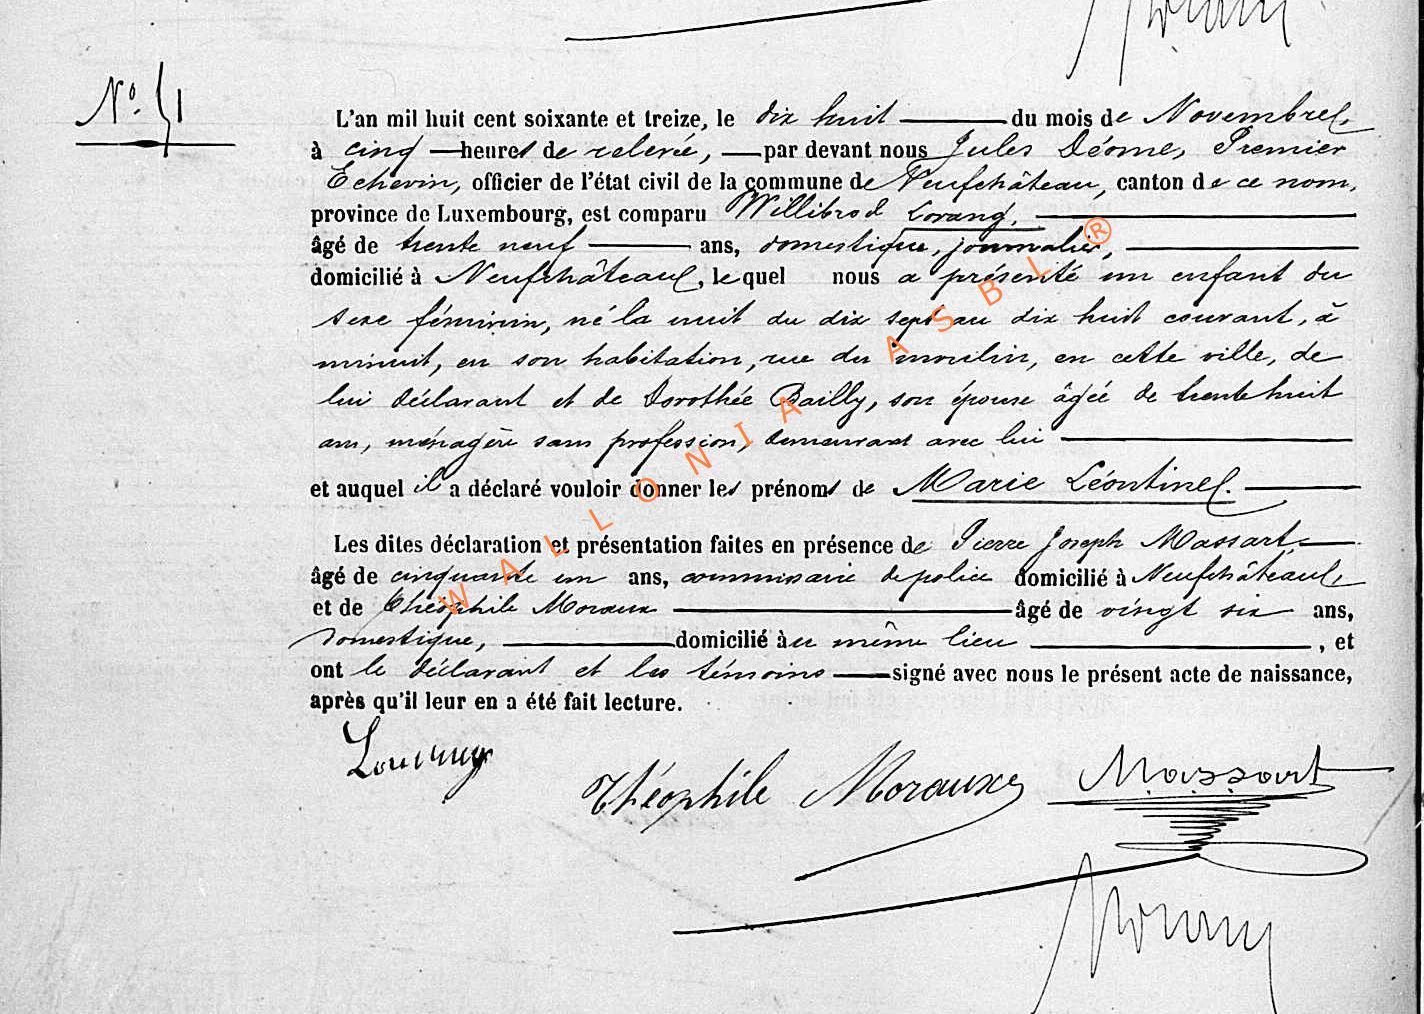 N° 51
L'an mil huit cent soixante et treize, le dix huit du mois de Novembre,
à cinq heures de relevée, par devant nous Jules Déome, Premier
Echevin, officier de l'état civil de la commune de Neufchâteau, canton de ce nom,
province de Luxembourg, est comparu Willibrod Lorang,
âgé de trente neuf ans, domestique, journalier,
domicilié à Neufchâteau, lequel nous a présenté un enfant du
sexe féminin, né la nuit du dix sept au dix huit courant, à
minuit, en son habitation, rue du moulin, en cette ville, de
lui déclarant et de Dorothée Bailly, son épouse âgée de trente huit
ans, ménagère sans profession, demeurant avec lui
et auquel il a déclaré vouloir donner les prénoms de Marie Léontine.
Les dites déclaration et présentation faites en présence de Pierre Joseph Massart,
âgé de cinquante un ans, commissaire de police domicilié à Neufchâteau,
et de Théophile Moraux âgé de vingt six ans,
domestique, domicilié au même lieu, et
ont le déclarant et les témoins signé avec nous le présent acte de naissance,
après qu'il leur en a été fait lecture.
Théophile Moraux Massart
WALLONIA ASBL ®